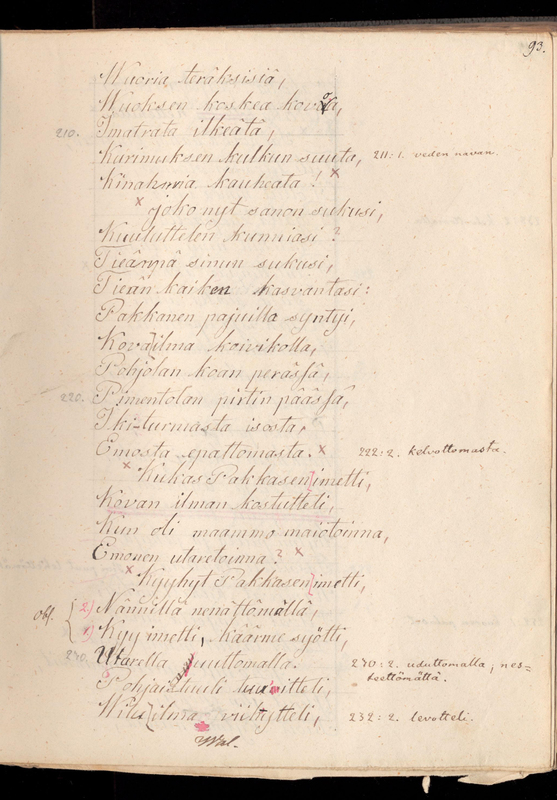 93.
Wuoria teräksisiä,
Wuoksen koskea kovoa,
210. Imatrata ilkeätä,
Kurimuksen kulkun suuta, 211: 1. veden navan.
Kinahmia kauheata! ×
× Joko nyt sanon sukusi,
Kuuluttelen kunniasi?
Tieämmä sinun sukusi,
Tieän kaiken kasvantasi:
Pakkanen pajuilla syntyi,
Kova ilma koivikolla,
Pohjolan koan perässä,
220. Pimentolan pirtin päässä,
Iki-turmasta isosta,
Emosta epattomasta. × 222: 2. kelvottomasta.
× Kukas Pakkasen imetti,
Kovan ilman kostutteli,
Kun oli maammo maiotoinna,
Emonen utaretoinna? ×
× Kyyhyt Pakkasen imetti,
obs. 2) Nännillä nenättömällä,
1) Kyy imetti, käärme syötti,
230. Utarella uuttomalla. 230: 2. uduttomalla; nes=
teettömällä.
Pohjaistuuli tuuitteli,
Wilu ilma viihytteli, 232: 2. levotteli.